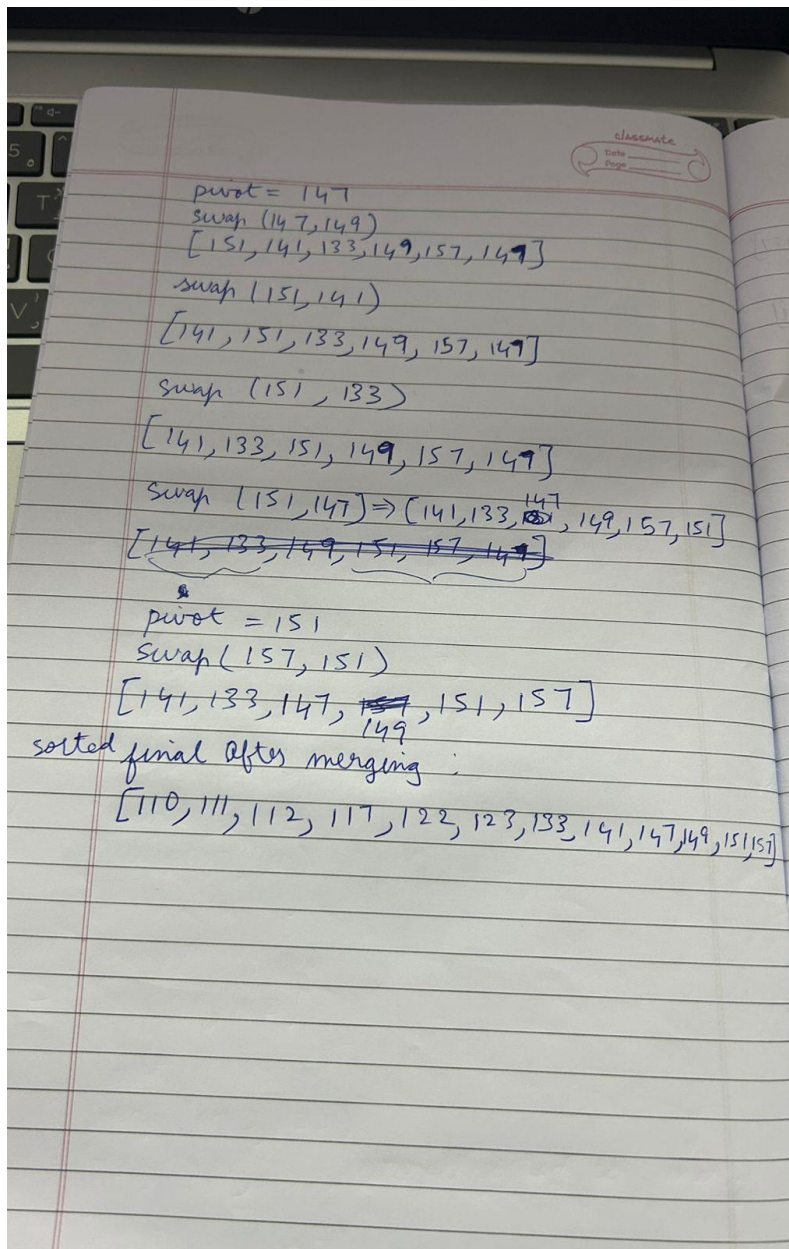 classmate
Date
Page
pivot = 147
swap (147,149)
[151,141,133,149,157,149]
swap (151,141)
[141,151,133,149,157,149]
swap (151,133)
[141,133,151,149,157,149]
swap (151,147] ⇒ [141,133,147,149,157,151]
[141,133,149,151,157,149]
pivot = 151
swap(157,151)
[141,133,147,149,151,157]
sorted final after merging :
[110,111,112,117,122,123,133,141,147,149,151,157]